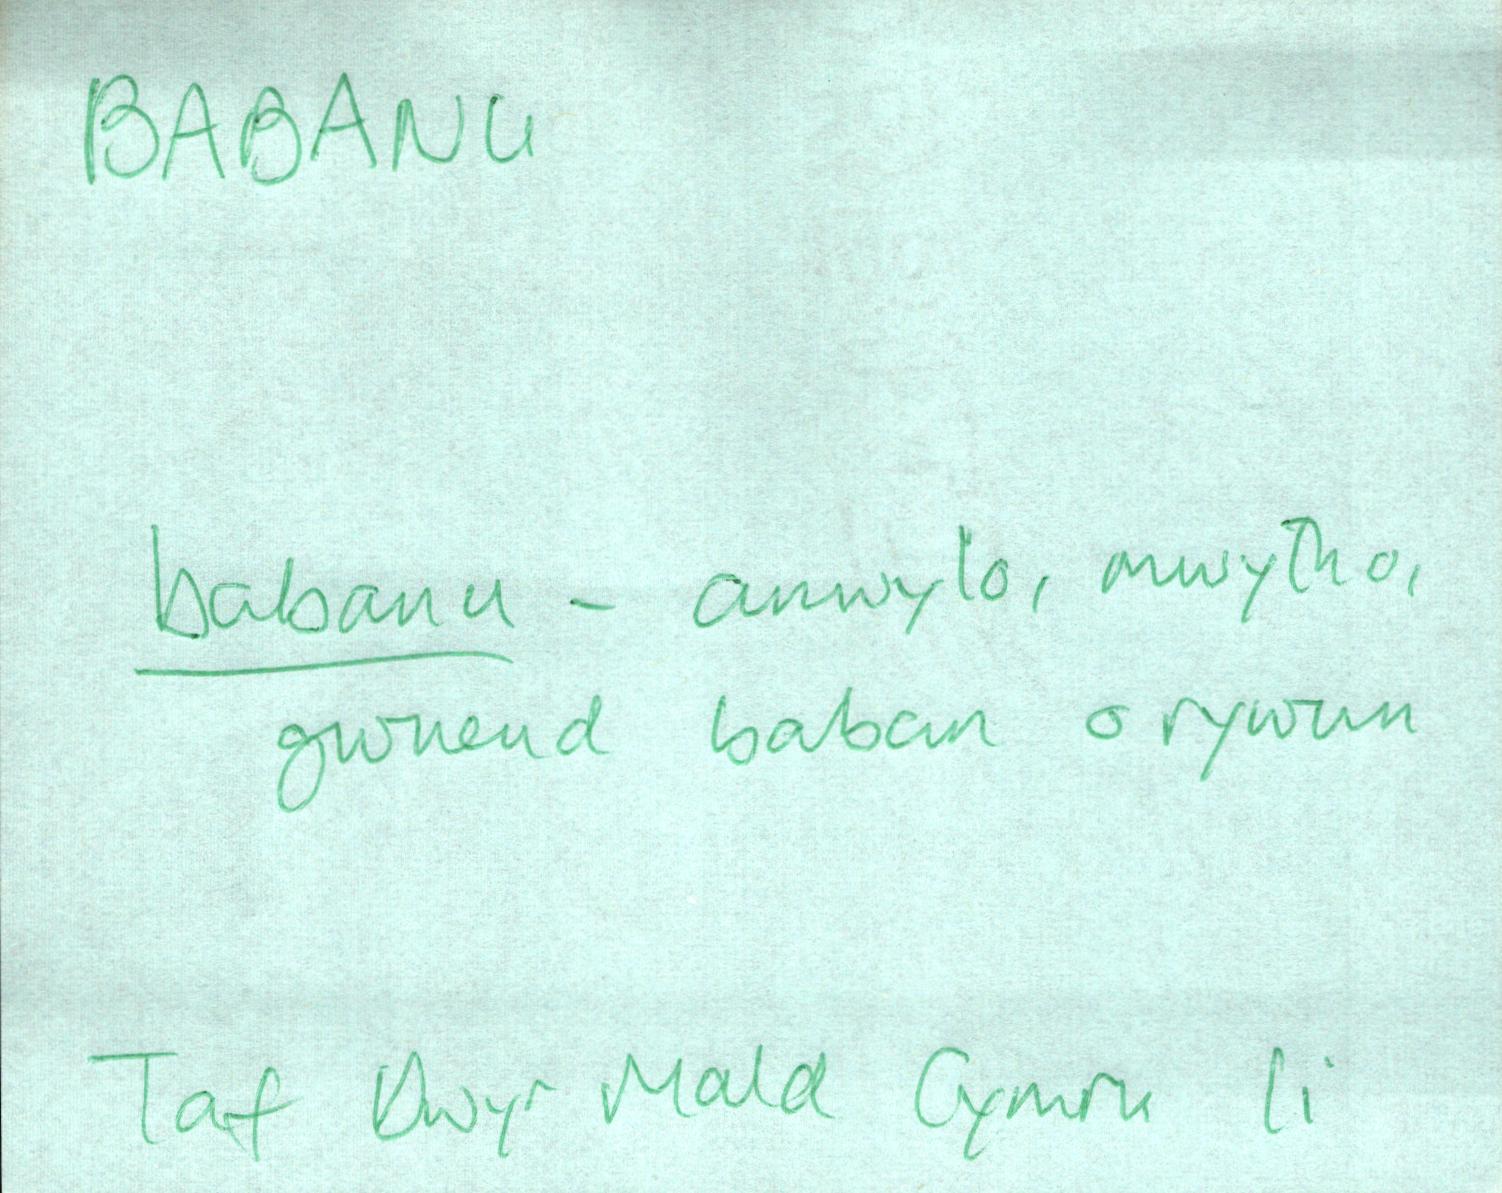 BABANU
babanu - anwylo, mwytho,
gwneud baban o rywun
Taf Dwyr Mald Cymru li